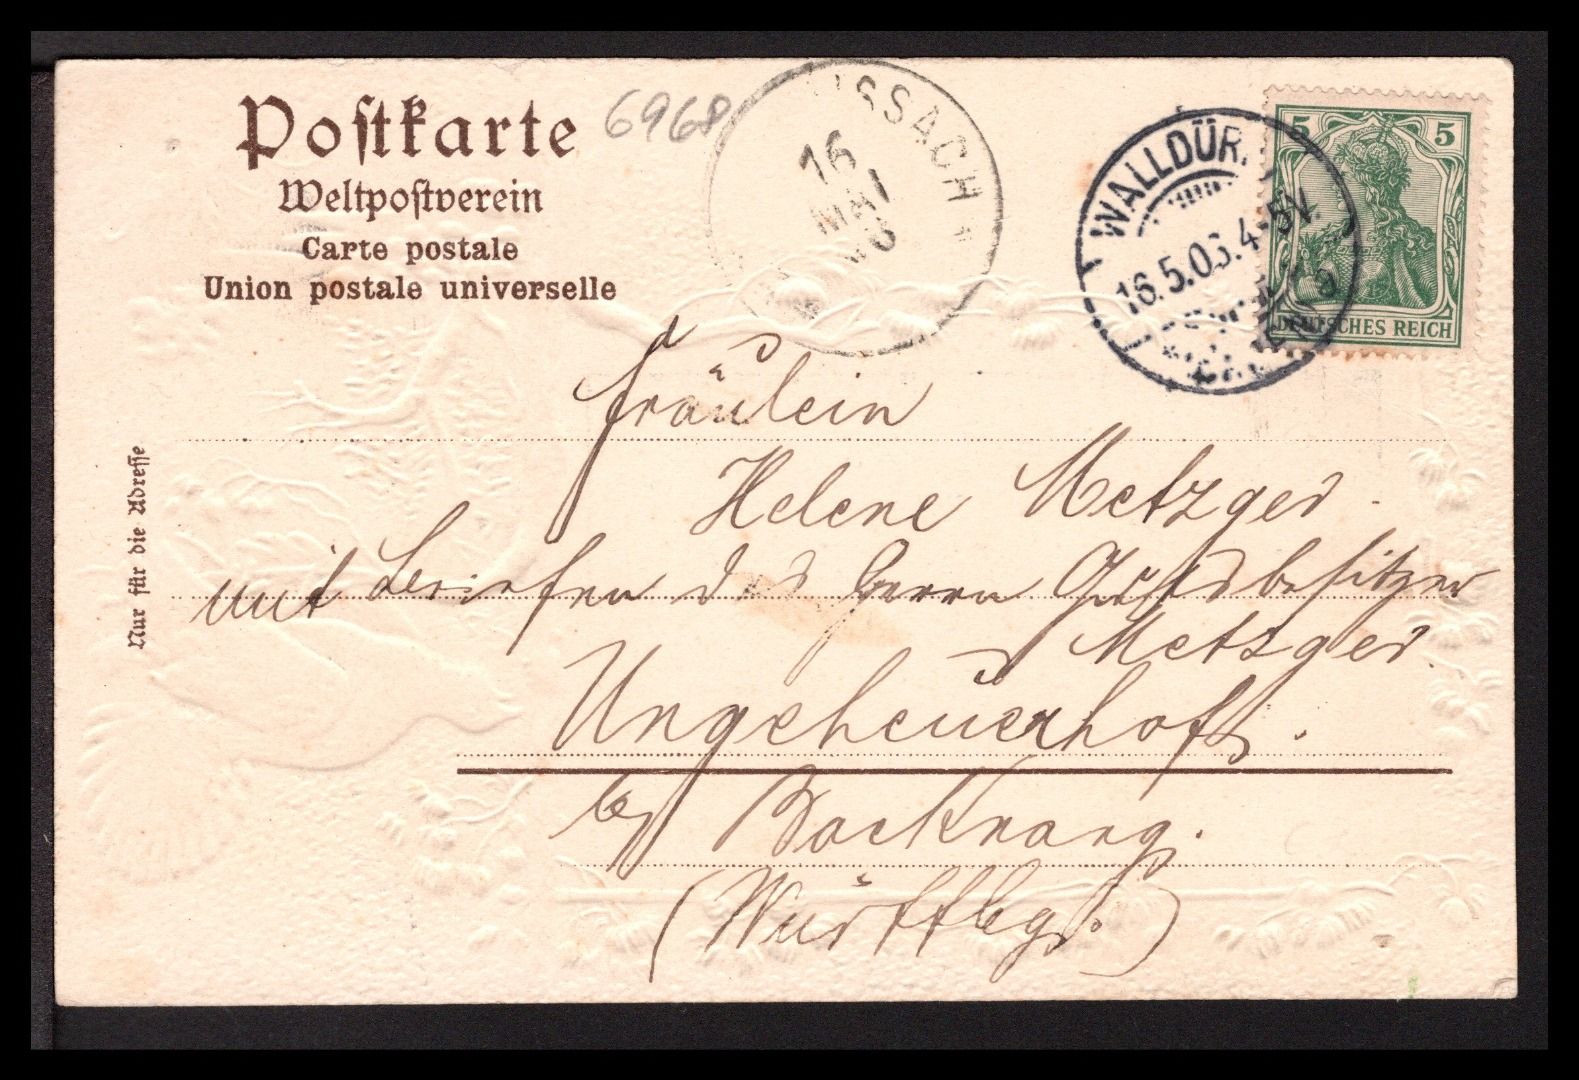 Postkarte
Weltpostverein
Carte postale
Union postale universelle
6968
SSACH
16
MAI
WALLDÜR
16.5.06.4-5V.
5 5
DEUTSCHES REICH
Nur für die Adresse
Fräulein
Helene Metzger.
mit des Herrn Gutsbesitzer
Metzger.
Ungeheuerhof.
bei Backnang.
(Württbg.)